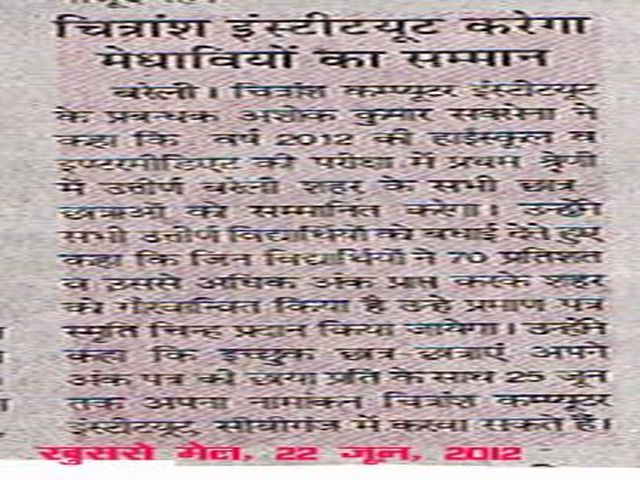 चित्रांश इंस्टीटयूट करेगा
मेधावियों का सम्मान
बरेली। चित्रांश कम्प्यूटर इंस्टीटयूट
के प्रबन्धक अशोक कुमार सक्सेना ने
कहा कि वर्ष 2012 की हाईस्कूल व
इण्टरमीडिएट की परीक्षा में प्रथम श्रेणी
में उत्तीर्ण बरेली शहर के सभी छात्र
छात्राओं को सम्मानित करेगा। उन्होंने
सभी उत्तीर्ण विद्यार्थियों को बधाई देते हुए
कहा कि जिन विद्यार्थियों ने 70 प्रतिशत
व इससे अधिक अंक प्राप्त करके शहर
को गौरवान्वित किया है उन्हे प्रमाण पत्र
स्मृति चिन्ह प्रदान किया जायेगा। उन्होंने
कहा कि इच्छुक छात्र छात्राएं अपने
अंक पत्र की छाया प्रति के साथ 25 जून
तक अपना नामांकन चित्रांश कम्प्यूटर
इंस्टीटयूट, सीबीगंज में करवा सकते हैं।
खुससे मेल, 22 जून, 2012